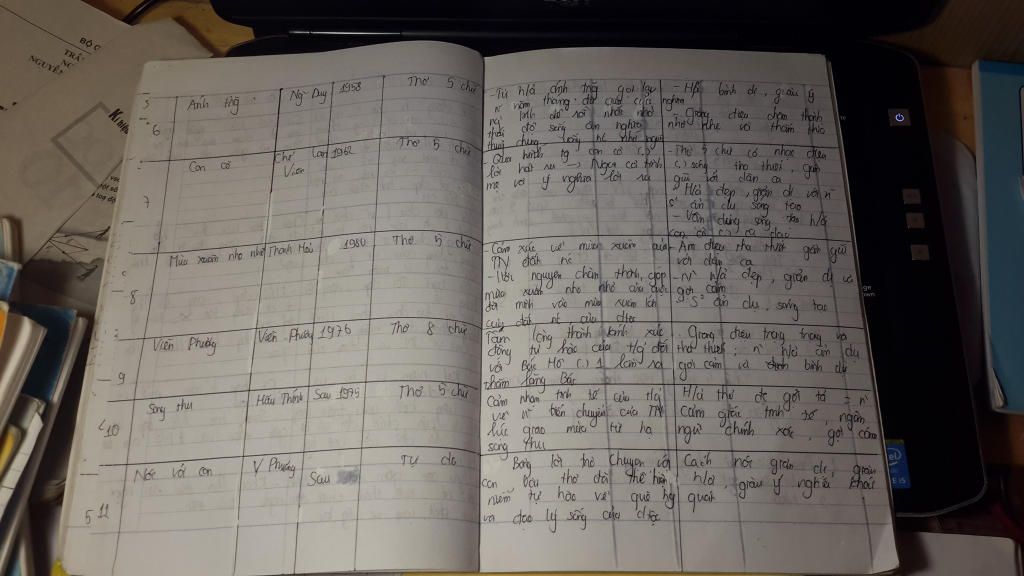 BỘ G
TRẦ
NGUYỄ
6
Ánh trăng
Ng~ Duy
1958
Thơ 5 chữ
- Từ h/ả ánh trăng gợi lại
n~ năm tháng đã qua của
ng` lính để rồi nhắc nhở
thái độ sống ân nghĩa
thuỷ chung
- H/ả bình dị, giàu ý
nghĩa
- Giọng điệu chân thành
nhỏ nhẹ và thấm thía
7
Con cò
Chế Lan
Viên
1962
Thơ 5 chữ
Qua hình tg con cò (.)
lời hát ru → Ngợi ca tình
mẹ và ý nghĩa lời ru
- Thơ 5 chữ có nhạc điệu
(.) sáng tha thiết, gần
gũi với dân ca
- H/ả đẹp, giản dị với n~
s² ẩn dụ sáng tạo
- Vận dụng sáng tạo h/ả
con cò (.) ca dao
8
Mùa xuân nho nhỏ
Thanh Hải
1980
Thơ 5 chữ
Cảm xúc về mùa xuân của
TN đất nc
- Ước nguyện chân thành góp
mùa xuân nho nhỏ của cuộc
đời mình vào mùa xuân lớn
của đất nc
- Âm điệu tha thiết gần gũi
với dân ca
- n~ h/ả đẹp, giản dị và
gợi cảm
- S² ẩn dụ, sáng tạo
9
Viễn Phương
Viễn Phương
1976
Thơ 8 chữ
Tấm lòng thành kính xúc
động tự hào của t/g đối
với Bác Hồ (.) 1 lần ra
thăm lăng Bác
- Giọng điệu trang trọng và
tha thiết; n~ h/ả ẩn dụ
gợi cảm và bình dị
10
Sang thu
Hữu Thỉnh
Sau 1975
Thơ 5 chữ
Cảm nhận tinh tế của t/g
về n~ biến chuyển của TN
lúc giao mùa từ hạ
sang thu
H/ả thơ dc gợi tả = n~
cảm giác tinh tế, ngôn
ngữ chính xác, gợi cảm
11
Nói với con
V Phương
Sau
Tự do
Bằng lời trò chuyện với
con bài thơ đã thể hiện
niềm tự hào về quê hg
và đạo lý sống của dtộc
Cách nói giản dị, giàu
h/ả, giàu ý nghĩa khái
quát